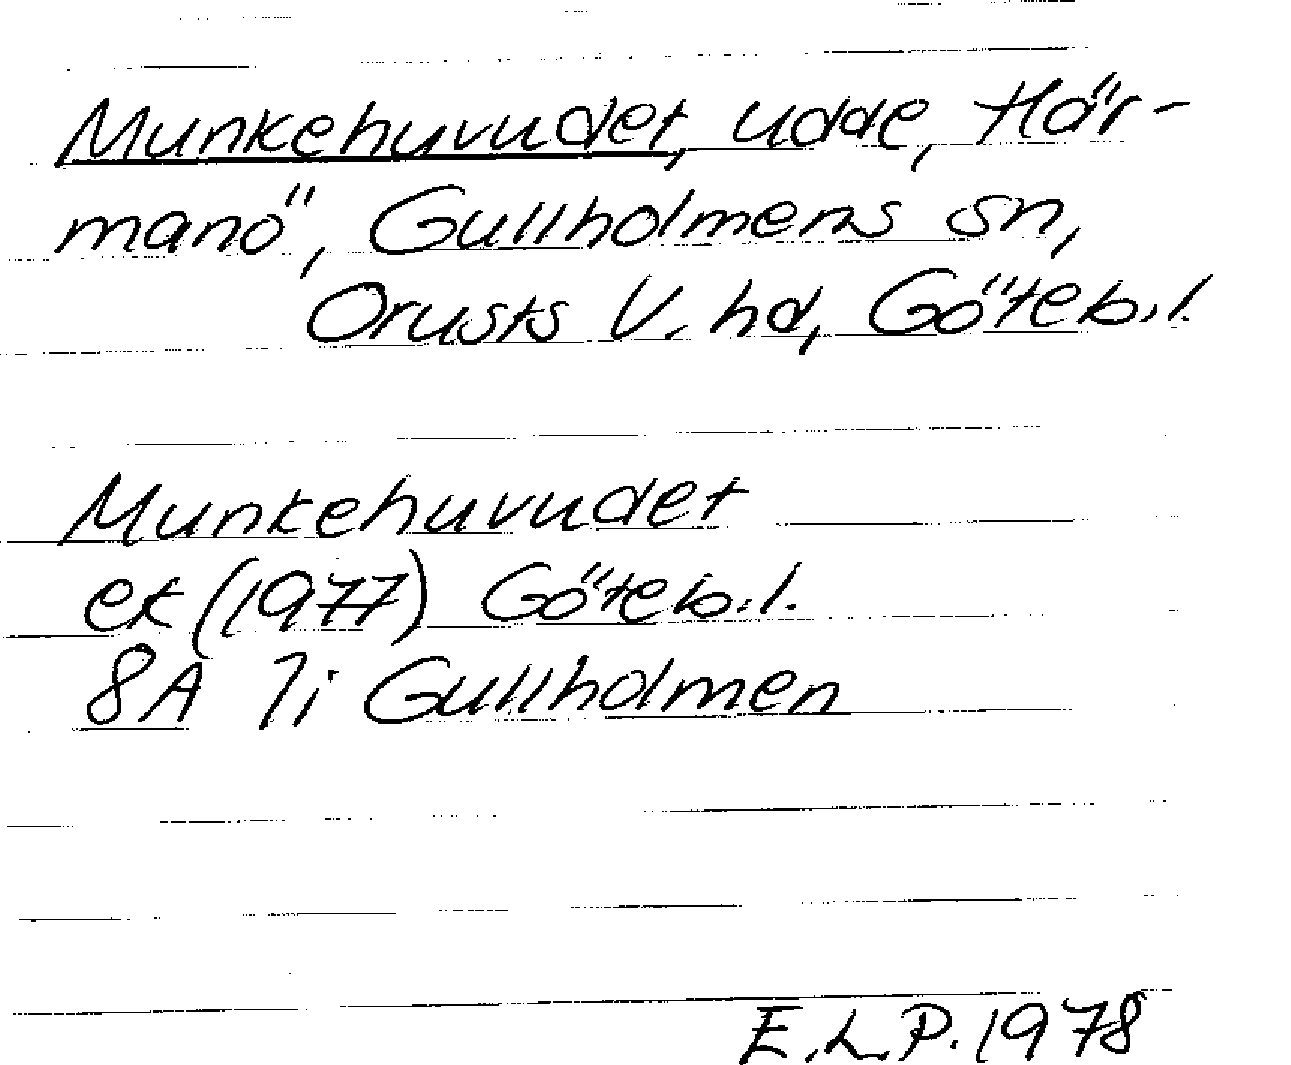 Munkehuvudet, udde, Här-
manö, Gullholmens sn,
Orusts V. hd, Göteb.l.
Munkehuvudet
ek (1977) Göteb.l.
8A 7i Gullholmen
E.L.P. 1978